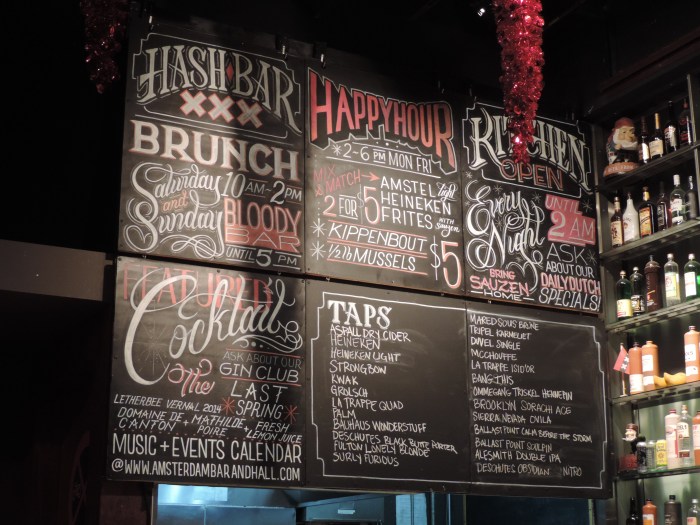 HASH BAR
XXX
BRUNCH
Saturday and Sunday
10 AM-2PM
BLOODY BAR
UNTIL 5 PM
HAPPY HOUR
2-6 PM MON FRI
MIX & MATCH
2 FOR $5
AMSTEL light
HEINEKEN
FRITES WITH SAUZEN
KIPPENBOUT
1/2 lb MUSSELS
$5
KITCHEN
OPEN
Every Night
UNTIL 2 AM
BRING SAUZEN HOME
ASK ABOUT OUR DAILY DUTCH SPECIALS!
FEATURED
Cocktail
ASK ABOUT OUR GIN CLUB
The LAST SPRING
LETHERBEE VERNAL 2014
DOMAINE DE CANTON + MATHILDE POIRE
FRESH LEMON JUICE
MUSIC + EVENTS CALENDAR
@WWW.AMSTERDAMBARANDHALL.COM
TAPS
ASPALL DRY CIDER
HEINEKEN
HEINEKEN LIGHT
STRONGBOW
KWAK
GROLSCH
LA TRAPPE QUAD
PALM
BAUHAUS WONDERSTUFF
DESCHUTES BLACK BUTTE PORTER
FULTON LONELY BLONDE
SURLY FURIOUS
MAREDSOUS BRUNE
TRIPEL KARMELIET
DUVEL SINGLE
MCCHOUFFE
LA TRAPPE ISID'OR
BANG THIS
OMMEGANG TRISKEL HENNEPIN
BROOKLYN SORACHI ACE
SIERRA NEVADA OVILA
BALLAST POINT CALM BEFORE THE STORM
BALLAST POINT SCULPIN
ALESMITH DOUBLE IPA
DESCHUTES OBSIDIAN NITRO